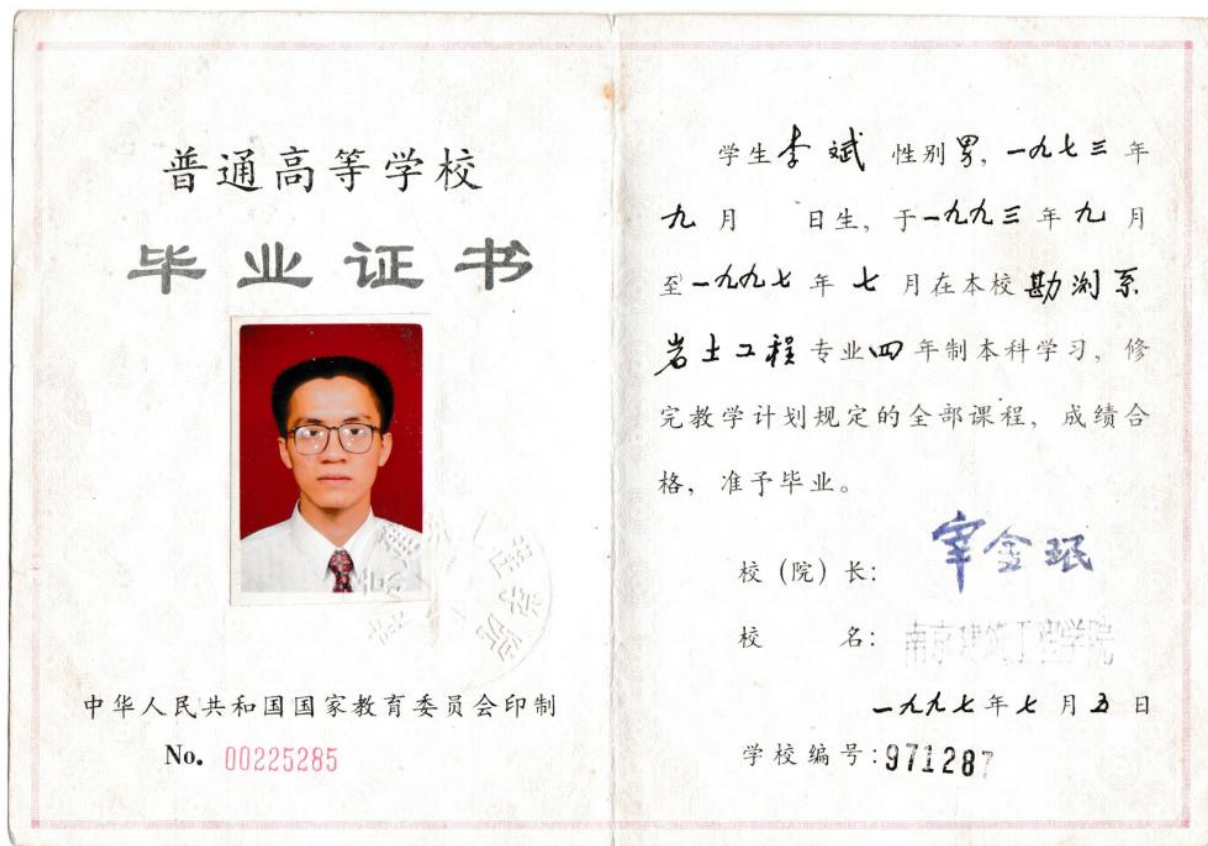 普通高等学校
毕业证书
中华人民共和国国家教育委员会印制
No. 00225285
学生李斌 性别男, 一九七三年
九月 日生, 于一九九三年九月
至一九九七年七月在本校勘测系
岩土工程专业四年制本科学习, 修
完教学计划规定的全部课程, 成绩合
格, 准予毕业。
校(院)长: 宰金珉
校 名: 南京建筑工程学院
一九九七年七月五日
学校编号:971287